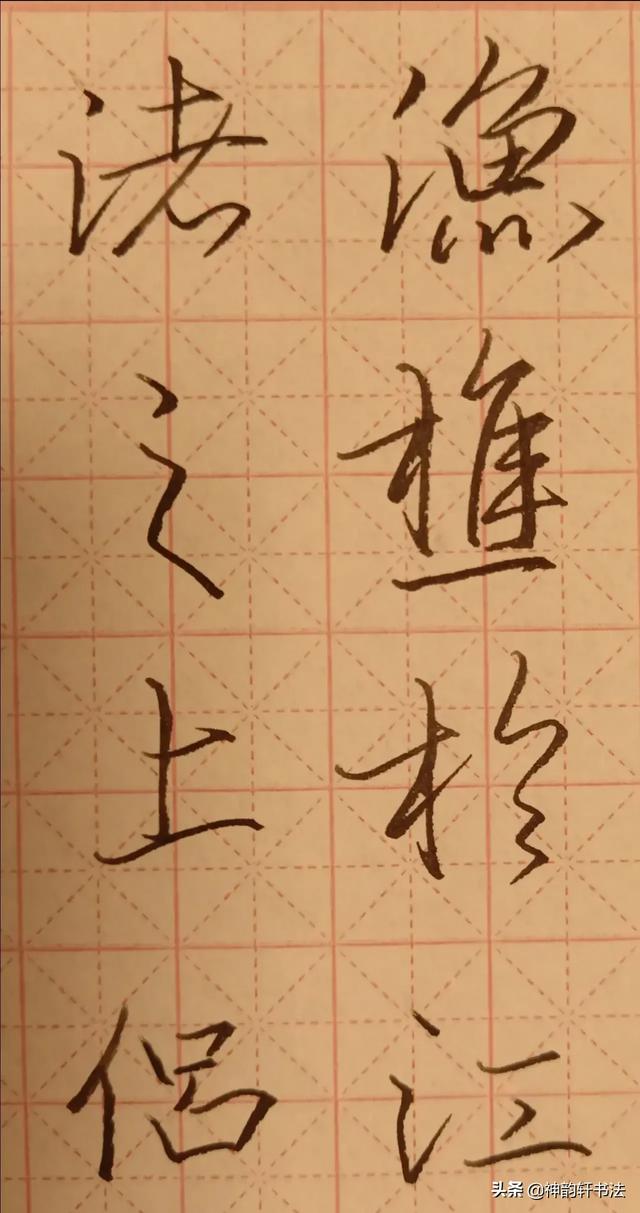 漁樵於江
渚之上侣
头条 @神韵轩书法